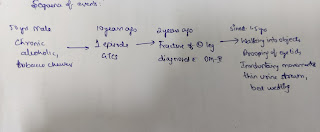 Sequence of events:
50 yr Male
Chronic
alcoholic,
tobacco chewer
10 years ago
1 episode
GTCS
2 years ago
Fracture of leg
diagnosed
Walking into objects
Drooping of eyelids
Involuntary movements
thin urine stream,
bed wetting